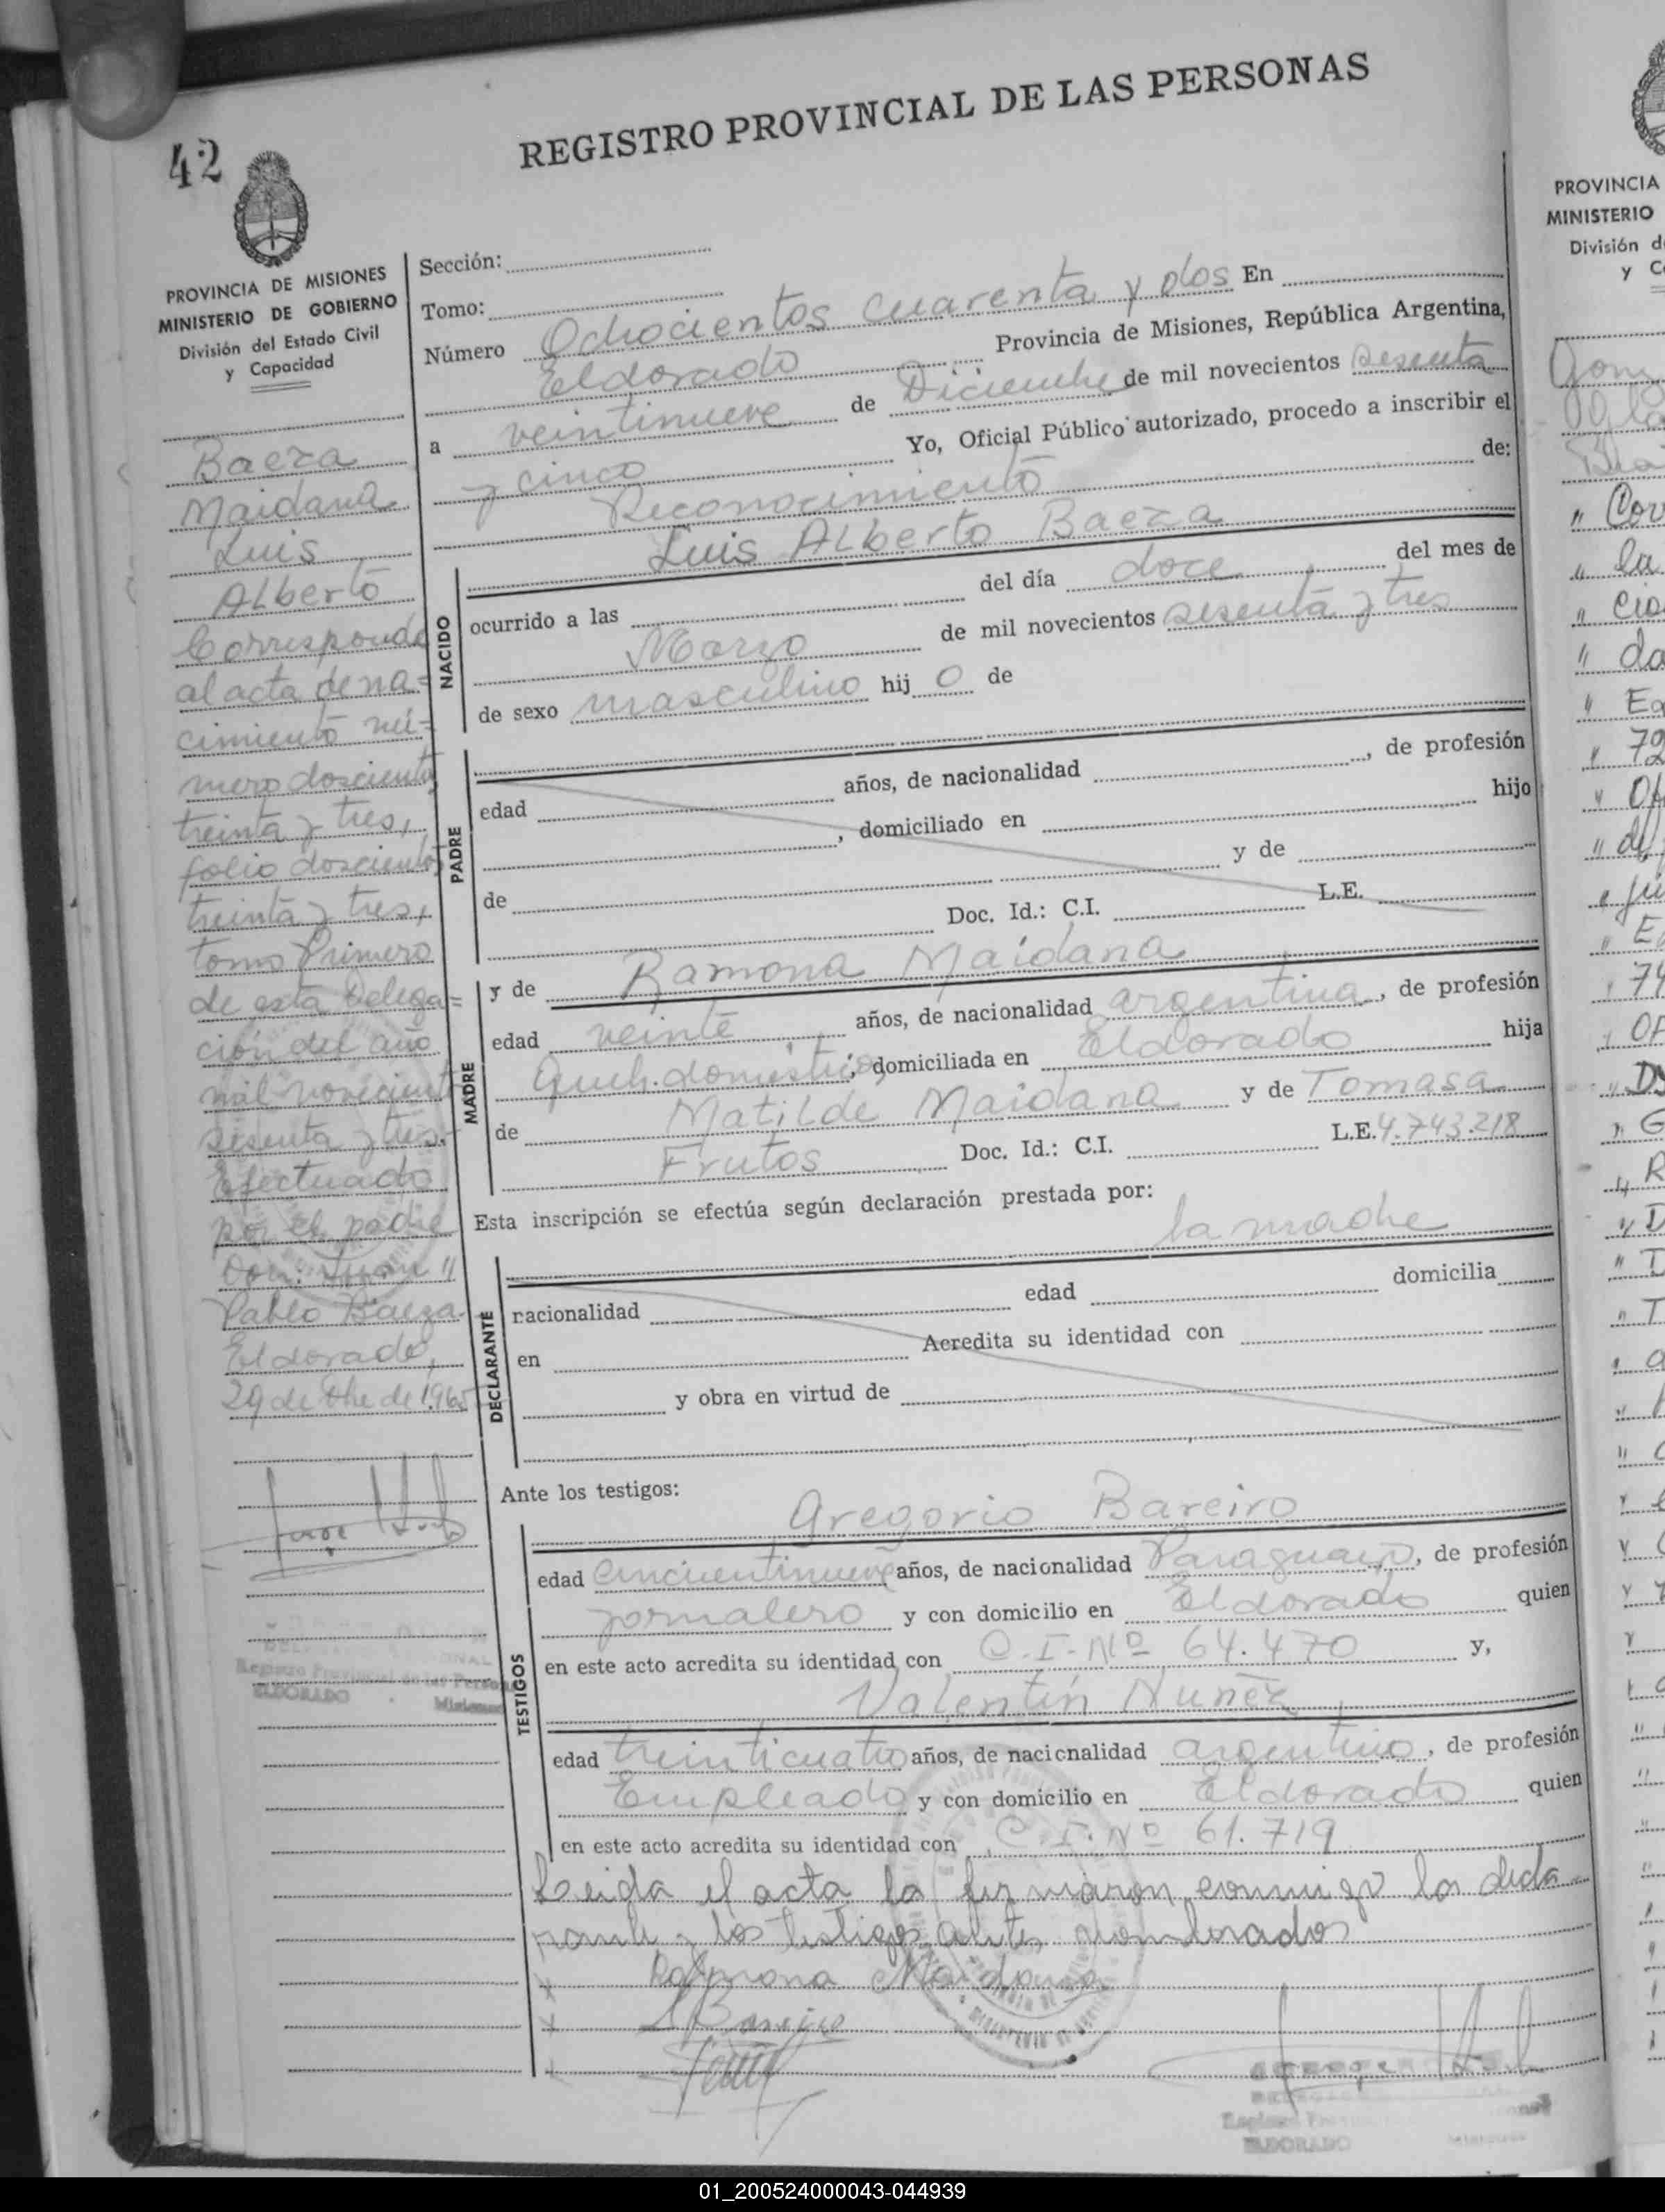 REGISTRO PROVINCIAL DE LAS PERSONAS
42
PROVINCIA DE MISIONES
MINISTERIO DE GOBIERNO
División del Estado Civil
y Capacidad
Baeza
Maidana
Luis
Alberto
Corresponde
al acta de na=
cimiento nú-
mero doscientos
treinta y tres,
folio doscientos
treinta y tres,
tomo Primero
de esta Delega=
ción del año
mil novecientos
sesenta y tres.
Efectuado
por el padre
Don: Juan
Pablo Baeza.
Eldorado,
29 de Dbre de 1.965
Registro Provincial de las Personas
ELDORADO Misiones
Sección:
Tomo:
Número Ochocientos cuarenta y dos En
Eldorado Provincia de Misiones, República Argentina,
a veintinueve de Diciembre de mil novecientos sesenta
y cinco Yo, Oficial Público autorizado, procedo a inscribir el
Reconocimiento de:
Luis Alberto Baeza
NACIDO
ocurrido a las del día doce del mes de
Marzo de mil novecientos sesenta y tres
de sexo masculino hij o de
PADRE
edad años, de nacionalidad , de profesión
, domiciliado en hijo
de y de
Doc. Id.: C.I. L.E.
MADRE
y de Ramona Maidana
edad veinte años, de nacionalidad argentina, de profesión
Queh. domésticos, domiciliada en Eldorado hija
de Matilde Maidana y de Tomasa
Frutos Doc. Id.: C.I. L.E. 4.743.218
Esta inscripción se efectúa según declaración prestada por:
la madre
DECLARANTE
nacionalidad edad domicilia
en Acredita su identidad con
y obra en virtud de
Ante los testigos:
TESTIGOS
Gregorio Bareiro
edad cincuentinueve años, de nacionalidad Paraguayo, de profesión
jornalero y con domicilio en Eldorado quien
en este acto acredita su identidad con C.I. Nº 64.470 y,
Valentín Nuñez
edad treinticuatro años, de nacionalidad argentino, de profesión
Empleado y con domicilio en Eldorado quien
en este acto acredita su identidad con C.I. Nº 61.719
Leida el acta la firmaron conmigo la decla
rante y los testigos antes nombrados
Ramona Maidana
Bareiro
ELDORADO
PROVINCIA
MINISTERIO
01_200524000043-044939